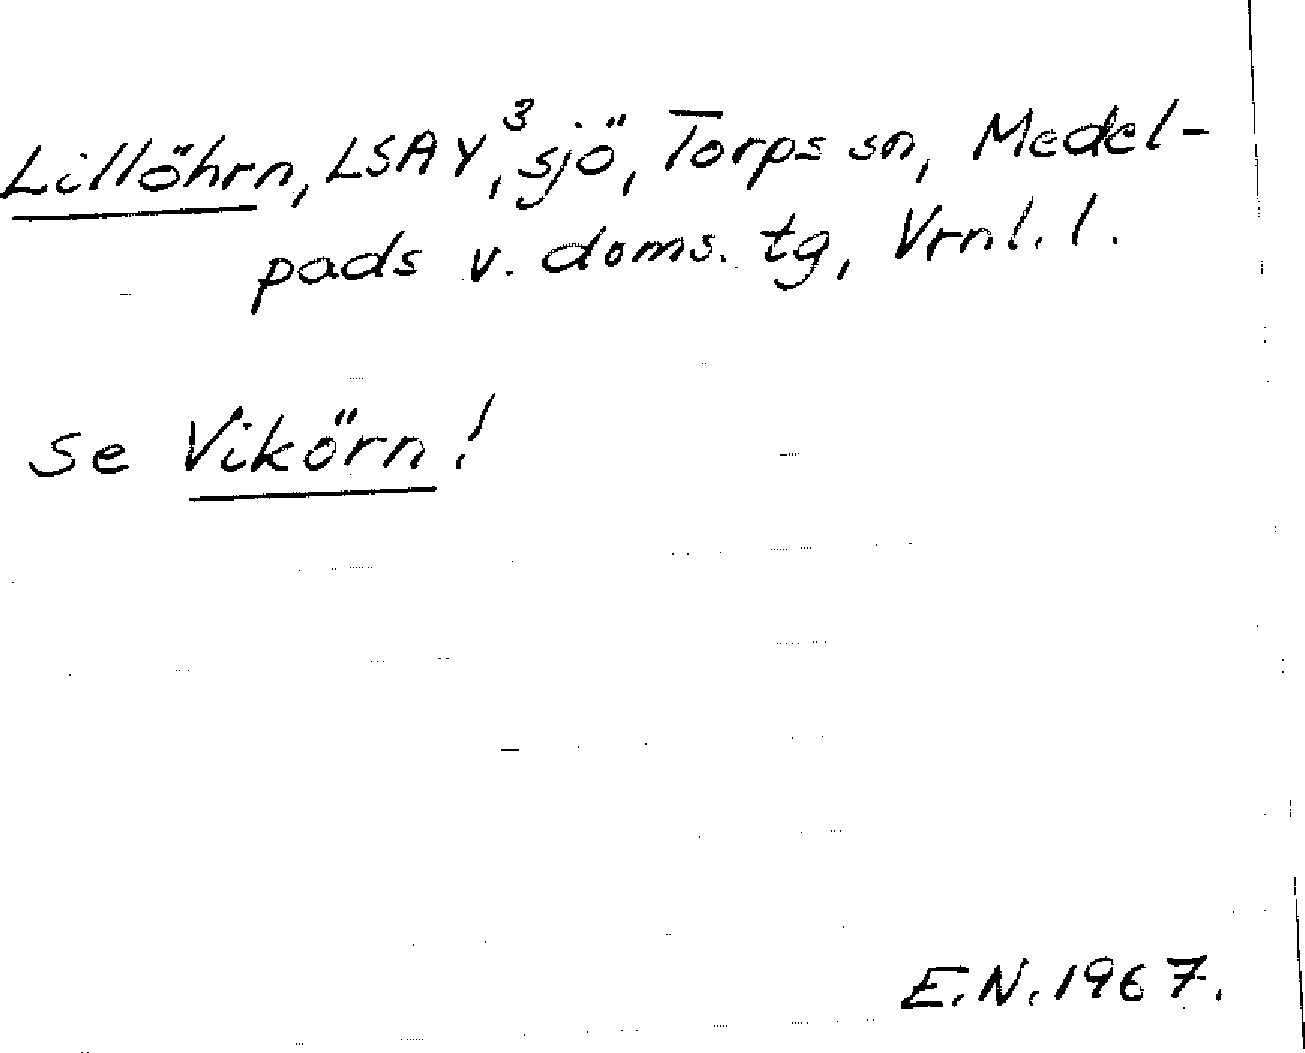 Lillöhrn, LSA Y³, sjö, Torps sn, Medel-
pads v. doms. tg, Vrnl. l.
se Vikörn!
E.N. 1967.